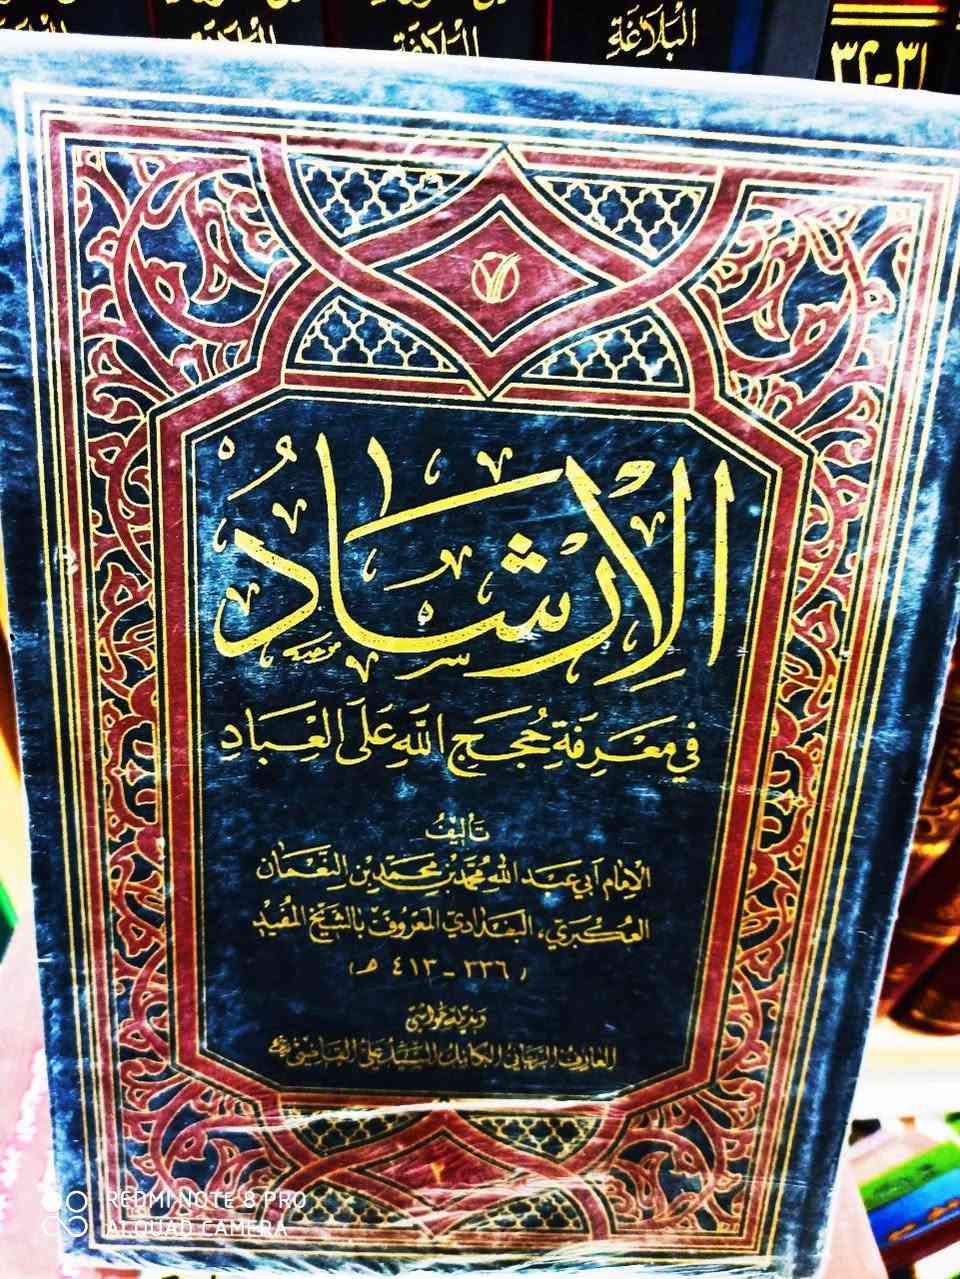 البلاغة
البلاغة
٣١-٣٢
الإِرشَادُ
فِي مَعْرِفَةِ حُجَجِ اللهِ عَلَى العِبَادِ
تأليفُ
الإمام أبي عبد الله محمّد بن محمّد بن النّعمان
العُكبري، البغدادي المعروف بالشّيخ المُفيد
( ٣٣٦ - ٤١٣ هـ )
وبذيله حواشي
العارف الرباني الكامل السيد علي القاضي
REDMI NOTE 8 PRO
AI QUAD CAMERA